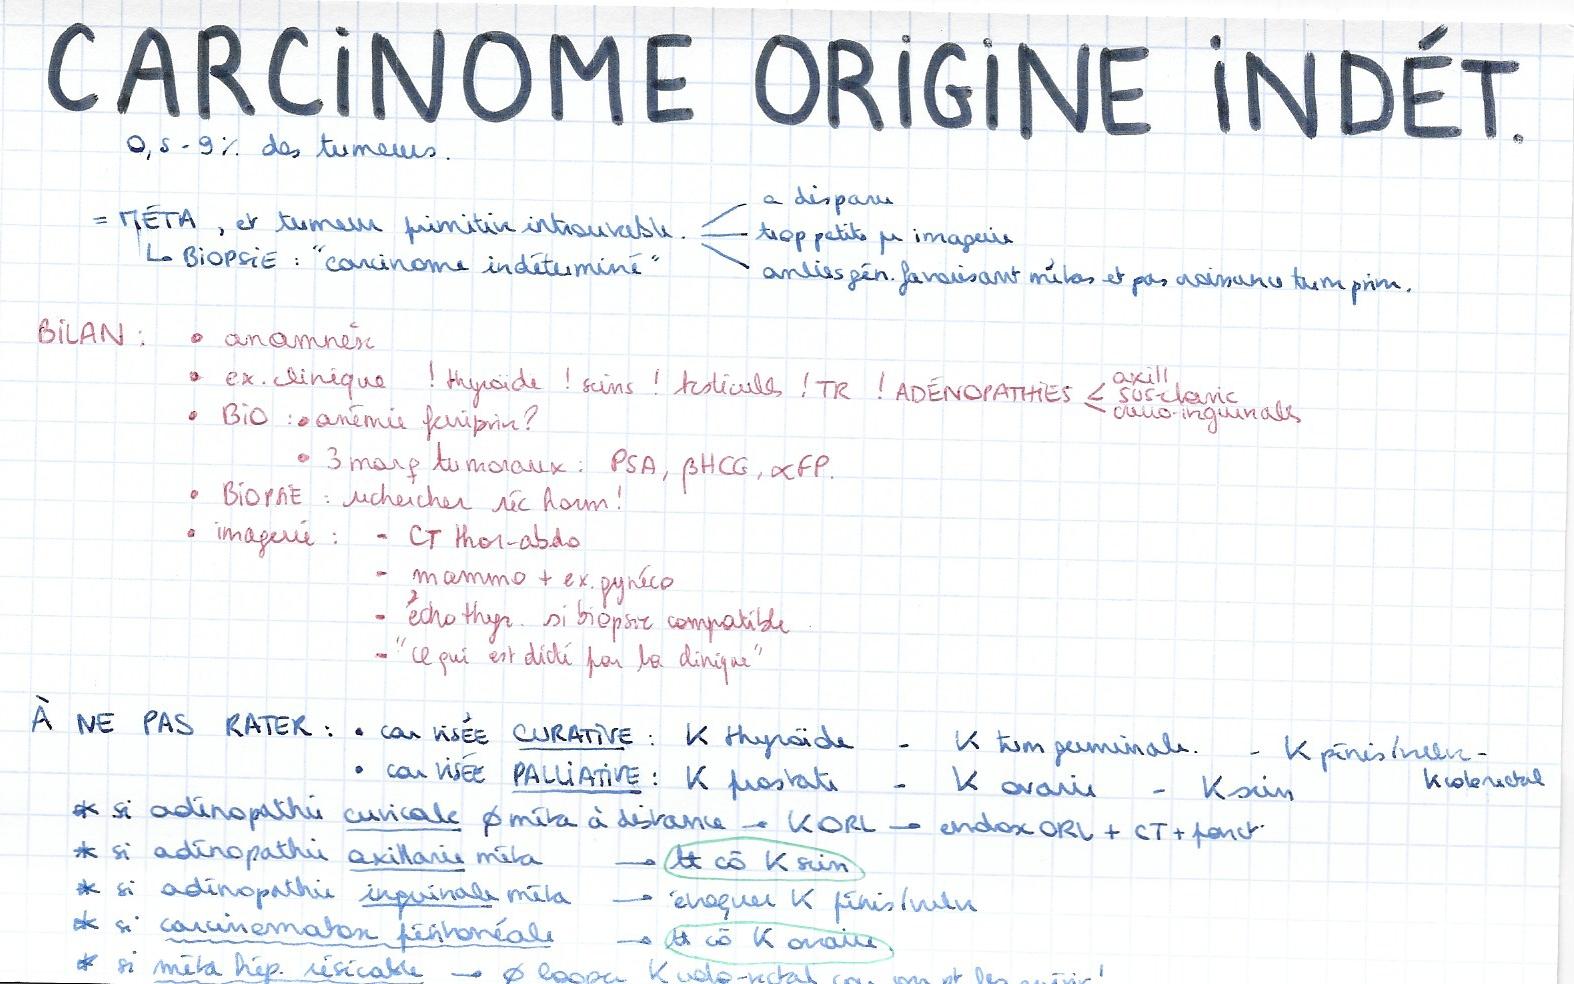 CARCINOME ORIGINE INDÉT.
0,5 - 9% des tumeurs.
= MÉTA, et tumeur primitive introuvable.
a disparu
trop petite pr imagerie
anlies gén. favorisant métas et pas croissance tum prim.
↳ BIOPSIE : "carcinome indéterminé"
BILAN :
• anamnèse
• ex. clinique ! thyroïde ! seins ! testicules ! TR ! ADÉNOPATHIES <
axill
sus-clavic
inguinales
• BIO : • anémie ferriprive ?
• 3 marq tumoraux : PSA, βHCG, αFP.
• BIOPSIE : rechercher réc horm !
• imagerie : - CT thor-abdo
- mammo + ex. gynéco
- écho thyr. si biopsie compatible
- "ce qui est dicté par la clinique"
À NE PAS RATER : • car VISÉE CURATIVE : K thyroïde - K tum germinale. - K pénis/vulve -
K colorectal
• car VISÉE PALLIATIVE : K prostate - K ovaire - K sein
* si adénopathie cervicale ∅ méta à distance → K ORL → endox ORL + CT + ponct°
* si adénopathie axillaire méta → tt cō K sein
* si adénopathie inguinale méta → évoquer K pénis/vulve
* si carcinomatose péritonéale → tt cō K ovaire
* si méta hép. résécable → ∅ louper K colo-rectal car on pt les guérir !